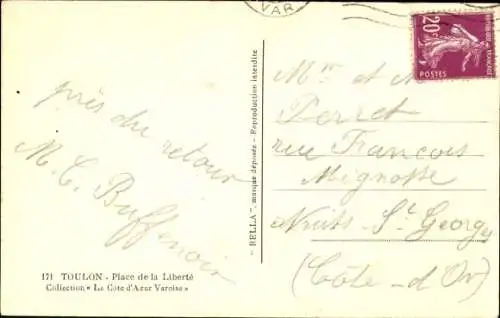 VAR
20c
POSTES
près du retour
M. C. Buffenoir
171 TOULON - Place de la Liberté
Collection « La Côte d'Azur Varoise »
" RELLA ", marque déposée - Reproduction interdite
Mr et M
Perret
rue François
Mignotte
Nuits-St Georges
(Côte-d'Or)